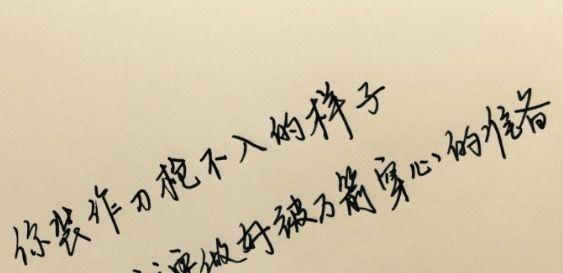 你装作刀枪不入的样子
要做好被万箭穿心的准备